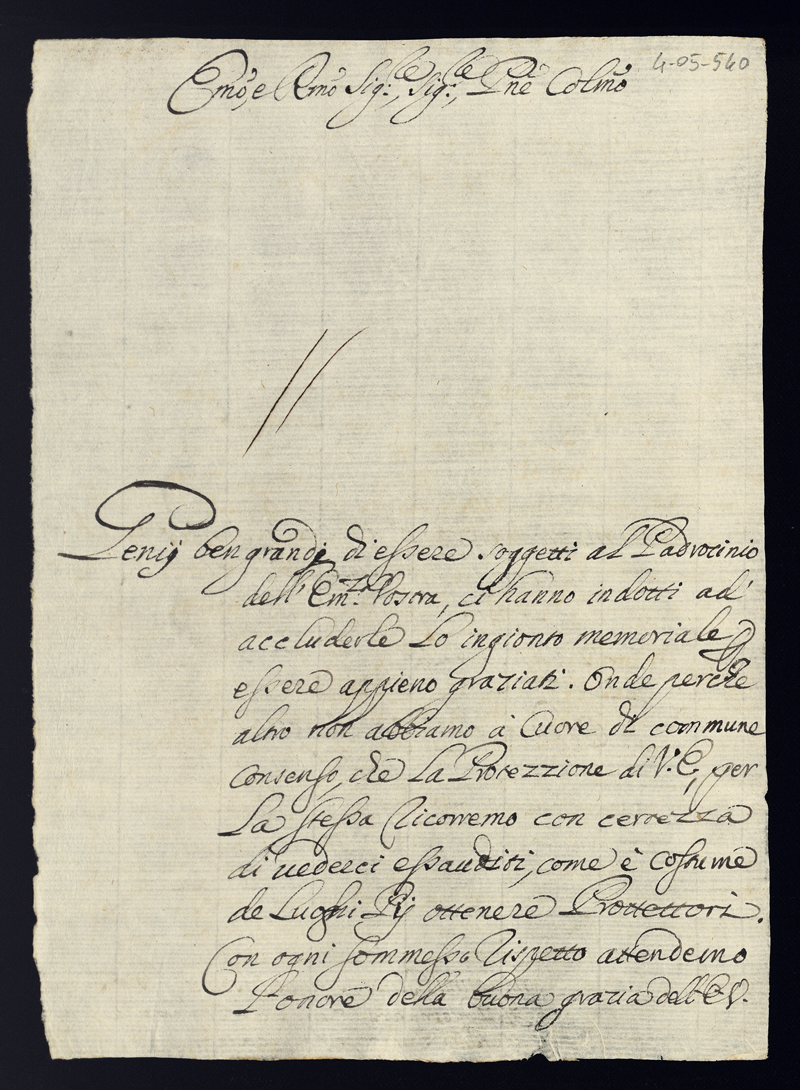 4-05-540
Emo, e Rmo Sig:re, Sig:re Pne Colmo
Genij ben grandi di essere soggetti al Padrocinio
dell'Em:za Vostra, ci hanno indotti ad
accluderle Lo ingionto memoriale p
essere appieno graziati. Onde perche
altro non abbiamo à Cuore di commune
Consenso, che La Protezzione di V. E, per
La stessa Ricorremo con certezza
di uederci essauditi, come è Costume
de Luoghi Pij ottenere Prottettori.
Con ogni sommesso Rispetto attendemo
l'onore della buona grazia dell'E V.